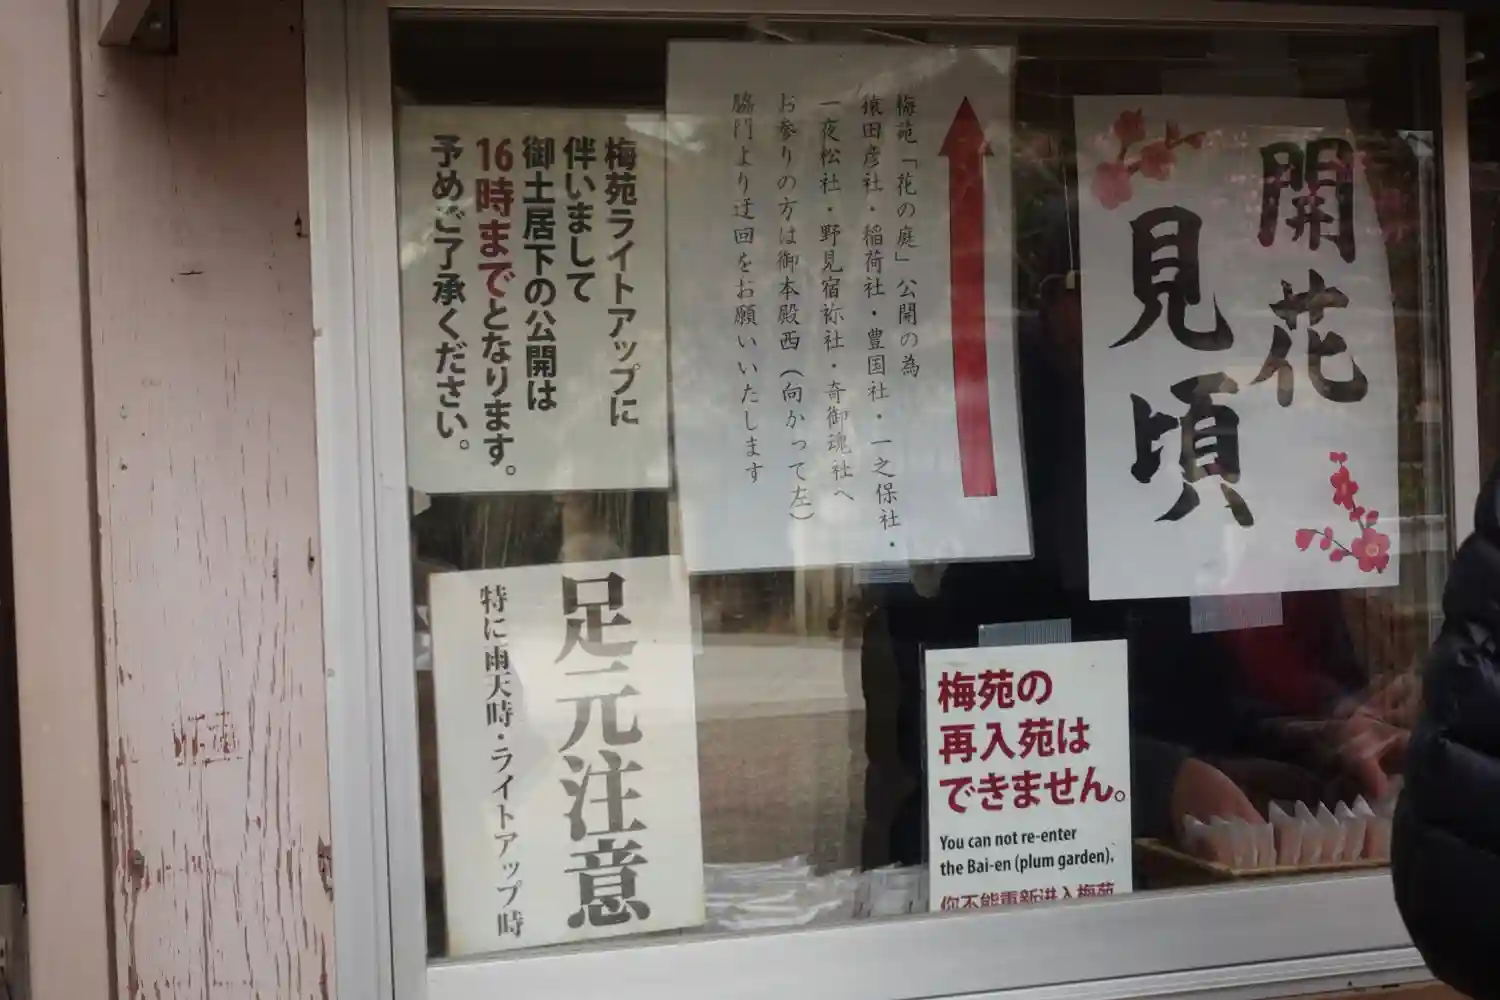 開花
見頃
梅苑「花の庭」公開の為
猿田彦社・稲荷社・豊国社・一之保社・
一夜松社・野見宿祢社・奇御魂社へ
お参りの方は御本殿西(向かって左)
脇門より迂回をお願いいたします
梅苑ライトアップに
伴いまして
御土居下の公開は
16時までとなります。
予めご了承ください。
足元注意
特に雨天時・ライトアップ時
梅苑の
再入苑は
できません。
You can not re-enter
the Bai-en (plum garden).
你不能重新进入梅苑